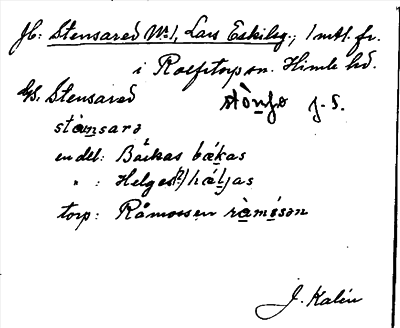 Jb: Stensared Nr. 1, Lars Eskilsg.; 1 mtl. fr.
i Rolfstorp sn. Himle hd.
Gs. Stensared stònsə J. S.
stànsarə
en del: Båkas bækas
" : Helges(?) hæljas
torp: Råmossen ràmósən
J. Kalén